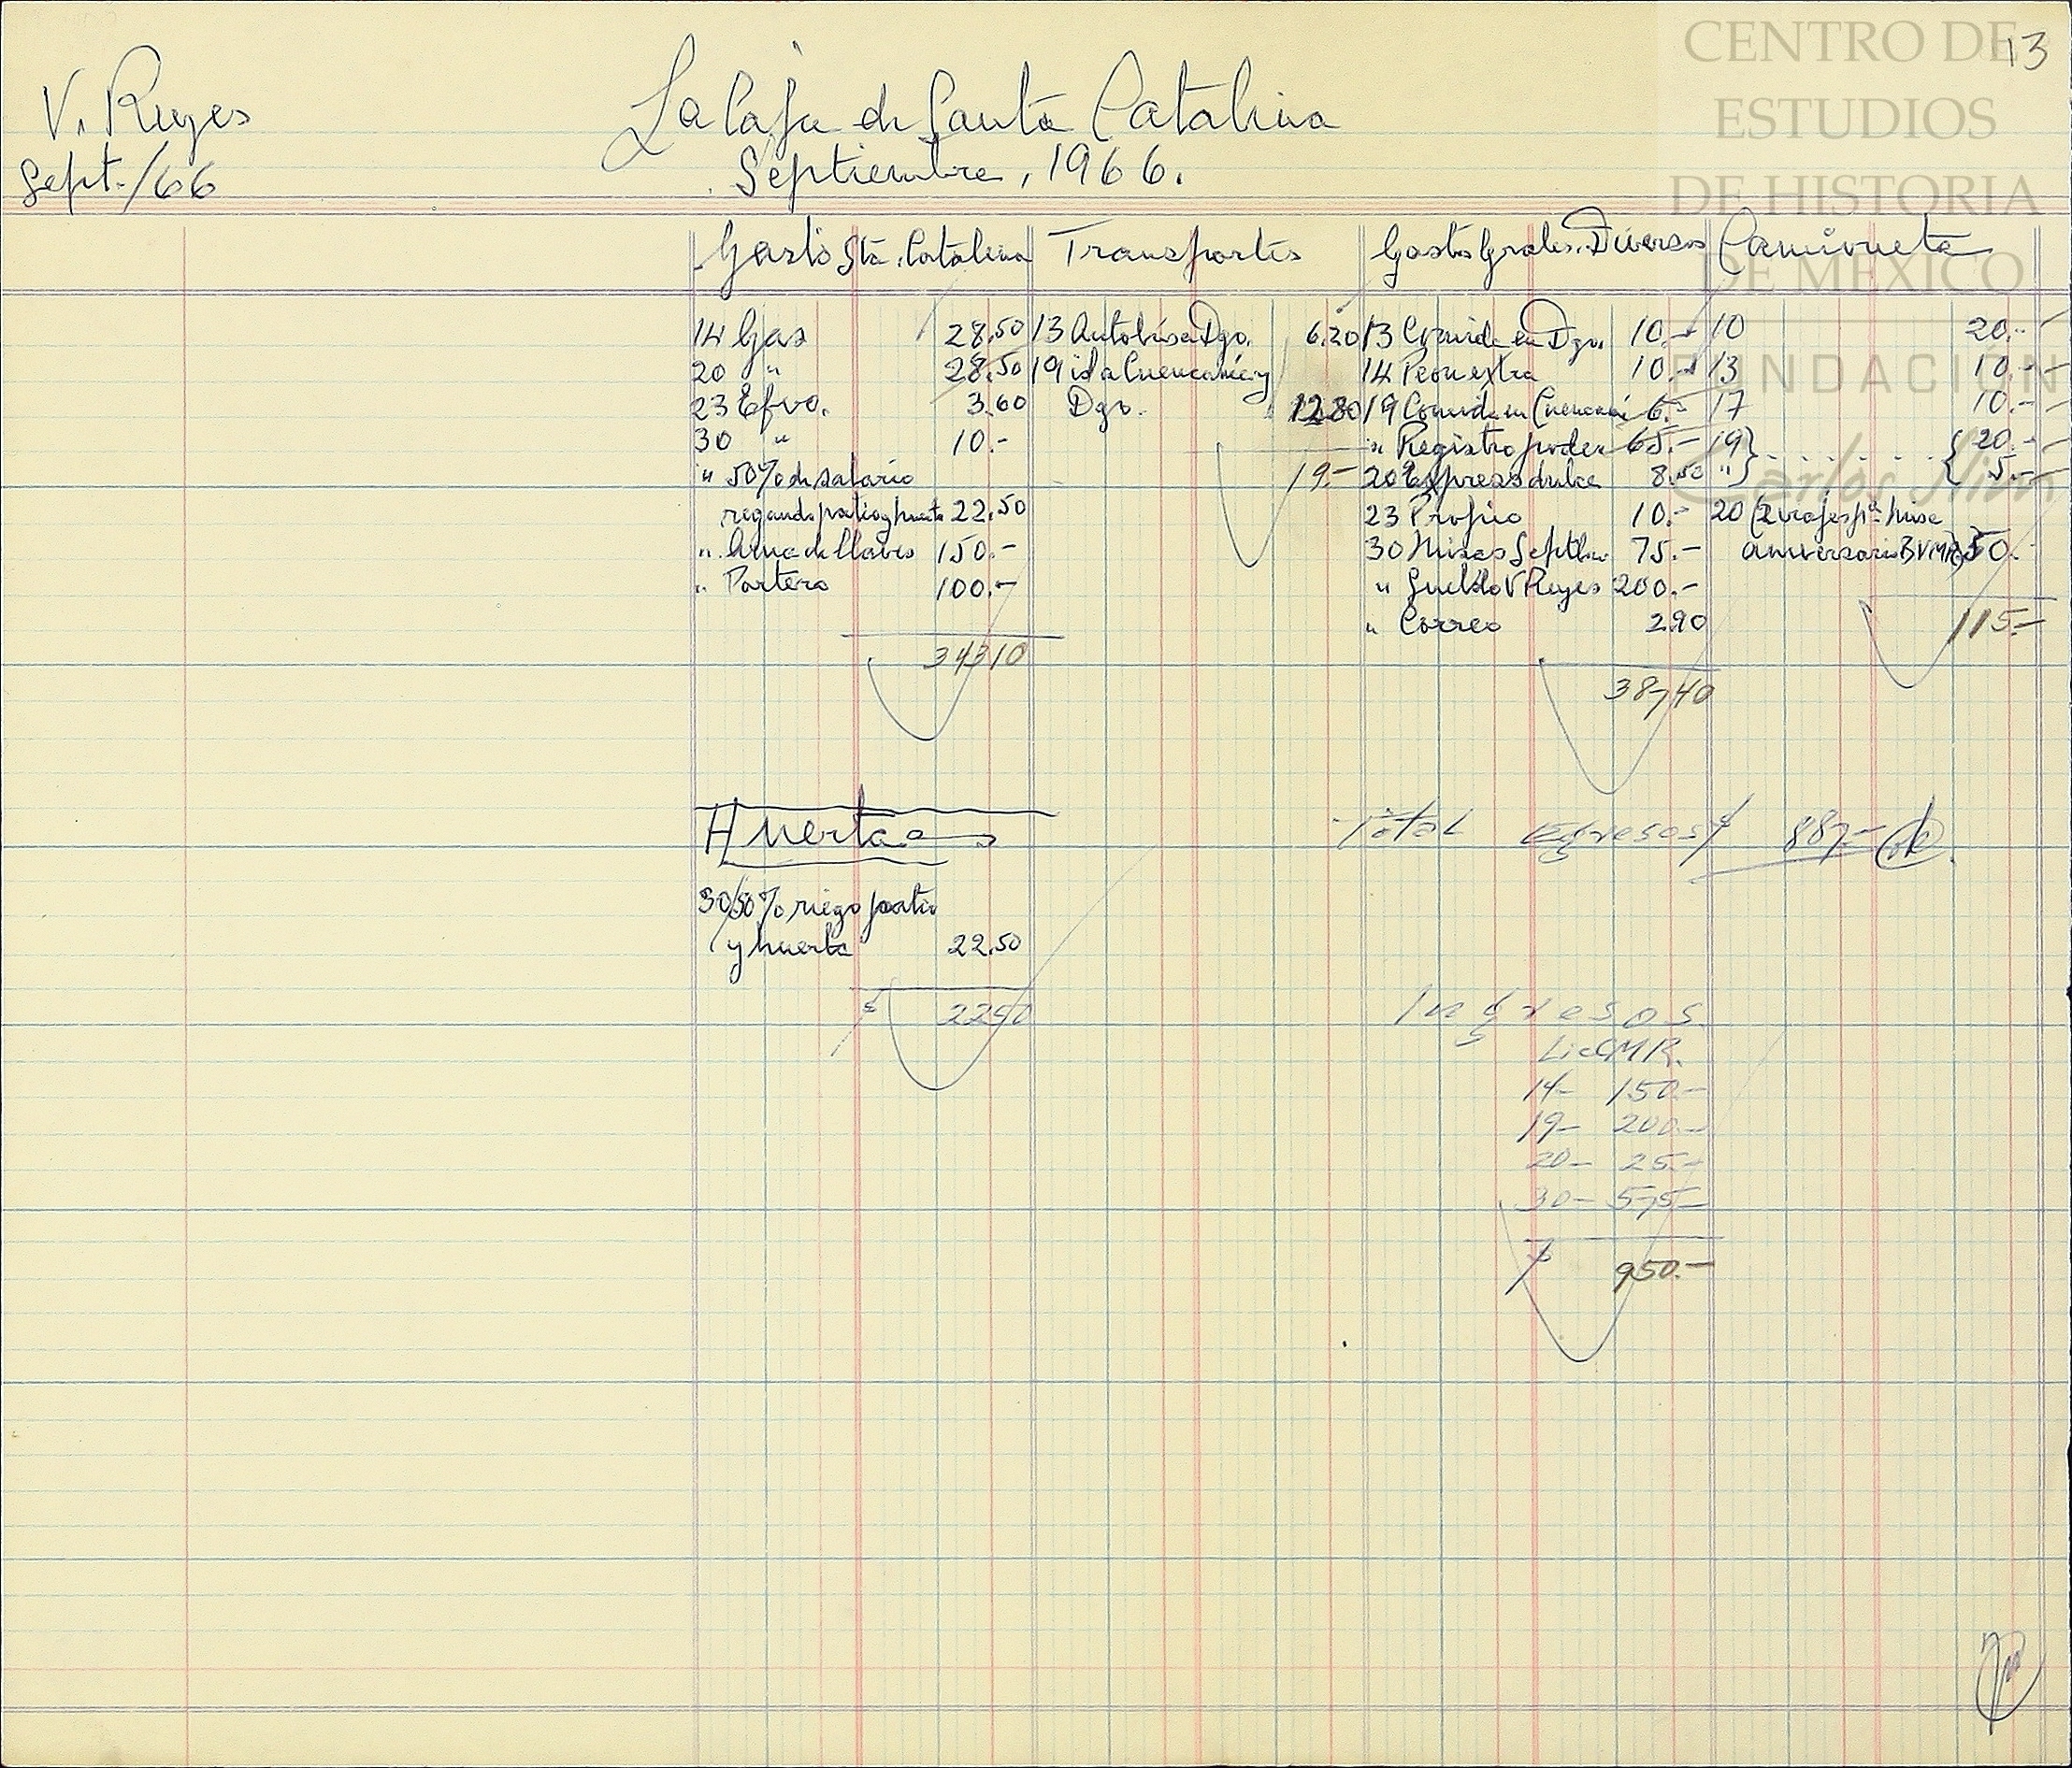 13
V. Reyes
Sept./66
La Casa de Santa Catalina
Septiembre, 1966.
CENTRO DE
ESTUDIOS
DE HISTORIA
DE MÉXICO
FUNDACIÓN
Carlos Slim
Gastos Sta. Catalina
14 Gas 28.50
20 " 28.50
23 Efvo. 3.60
30 " 10.-
" 50% de salario
regando patio y huerta 22.50
" Ama de llaves 150.-
" Portero 100.-
343 10
Transportes
13 Autobús a Dgo. 6.20
19 id a Cuencamé y
Dgo. 12.80
19.-
Gastos Grales. Diversos
13 Comida en Dgo. 10.-
14 Peon extra 10.-
19 Comida en Cuencamé 6.-
" Registro poder 65.-
20 Express dulce 8.50
23 Propio 10.-
30 Misas Septbre. 75.-
" Sueldo V Reyes 200.-
" Correo 2.90
387 40
Camioneta
10 20.-
13 10.-
17 10.-
19 } . . . . . . { 20.-
" } { 5.-
20 (2 viajes pa. misa
aniversario BVMR) 50.-
115.-
Huerta
30 50% riego patio
y huerta 22.50
$ 22 50
Total Egresos $ 887.-
Ingresos
Lic CMR.
14- 150.-
19- 200.-
20- 25.-
30- 575-
$ 950.-